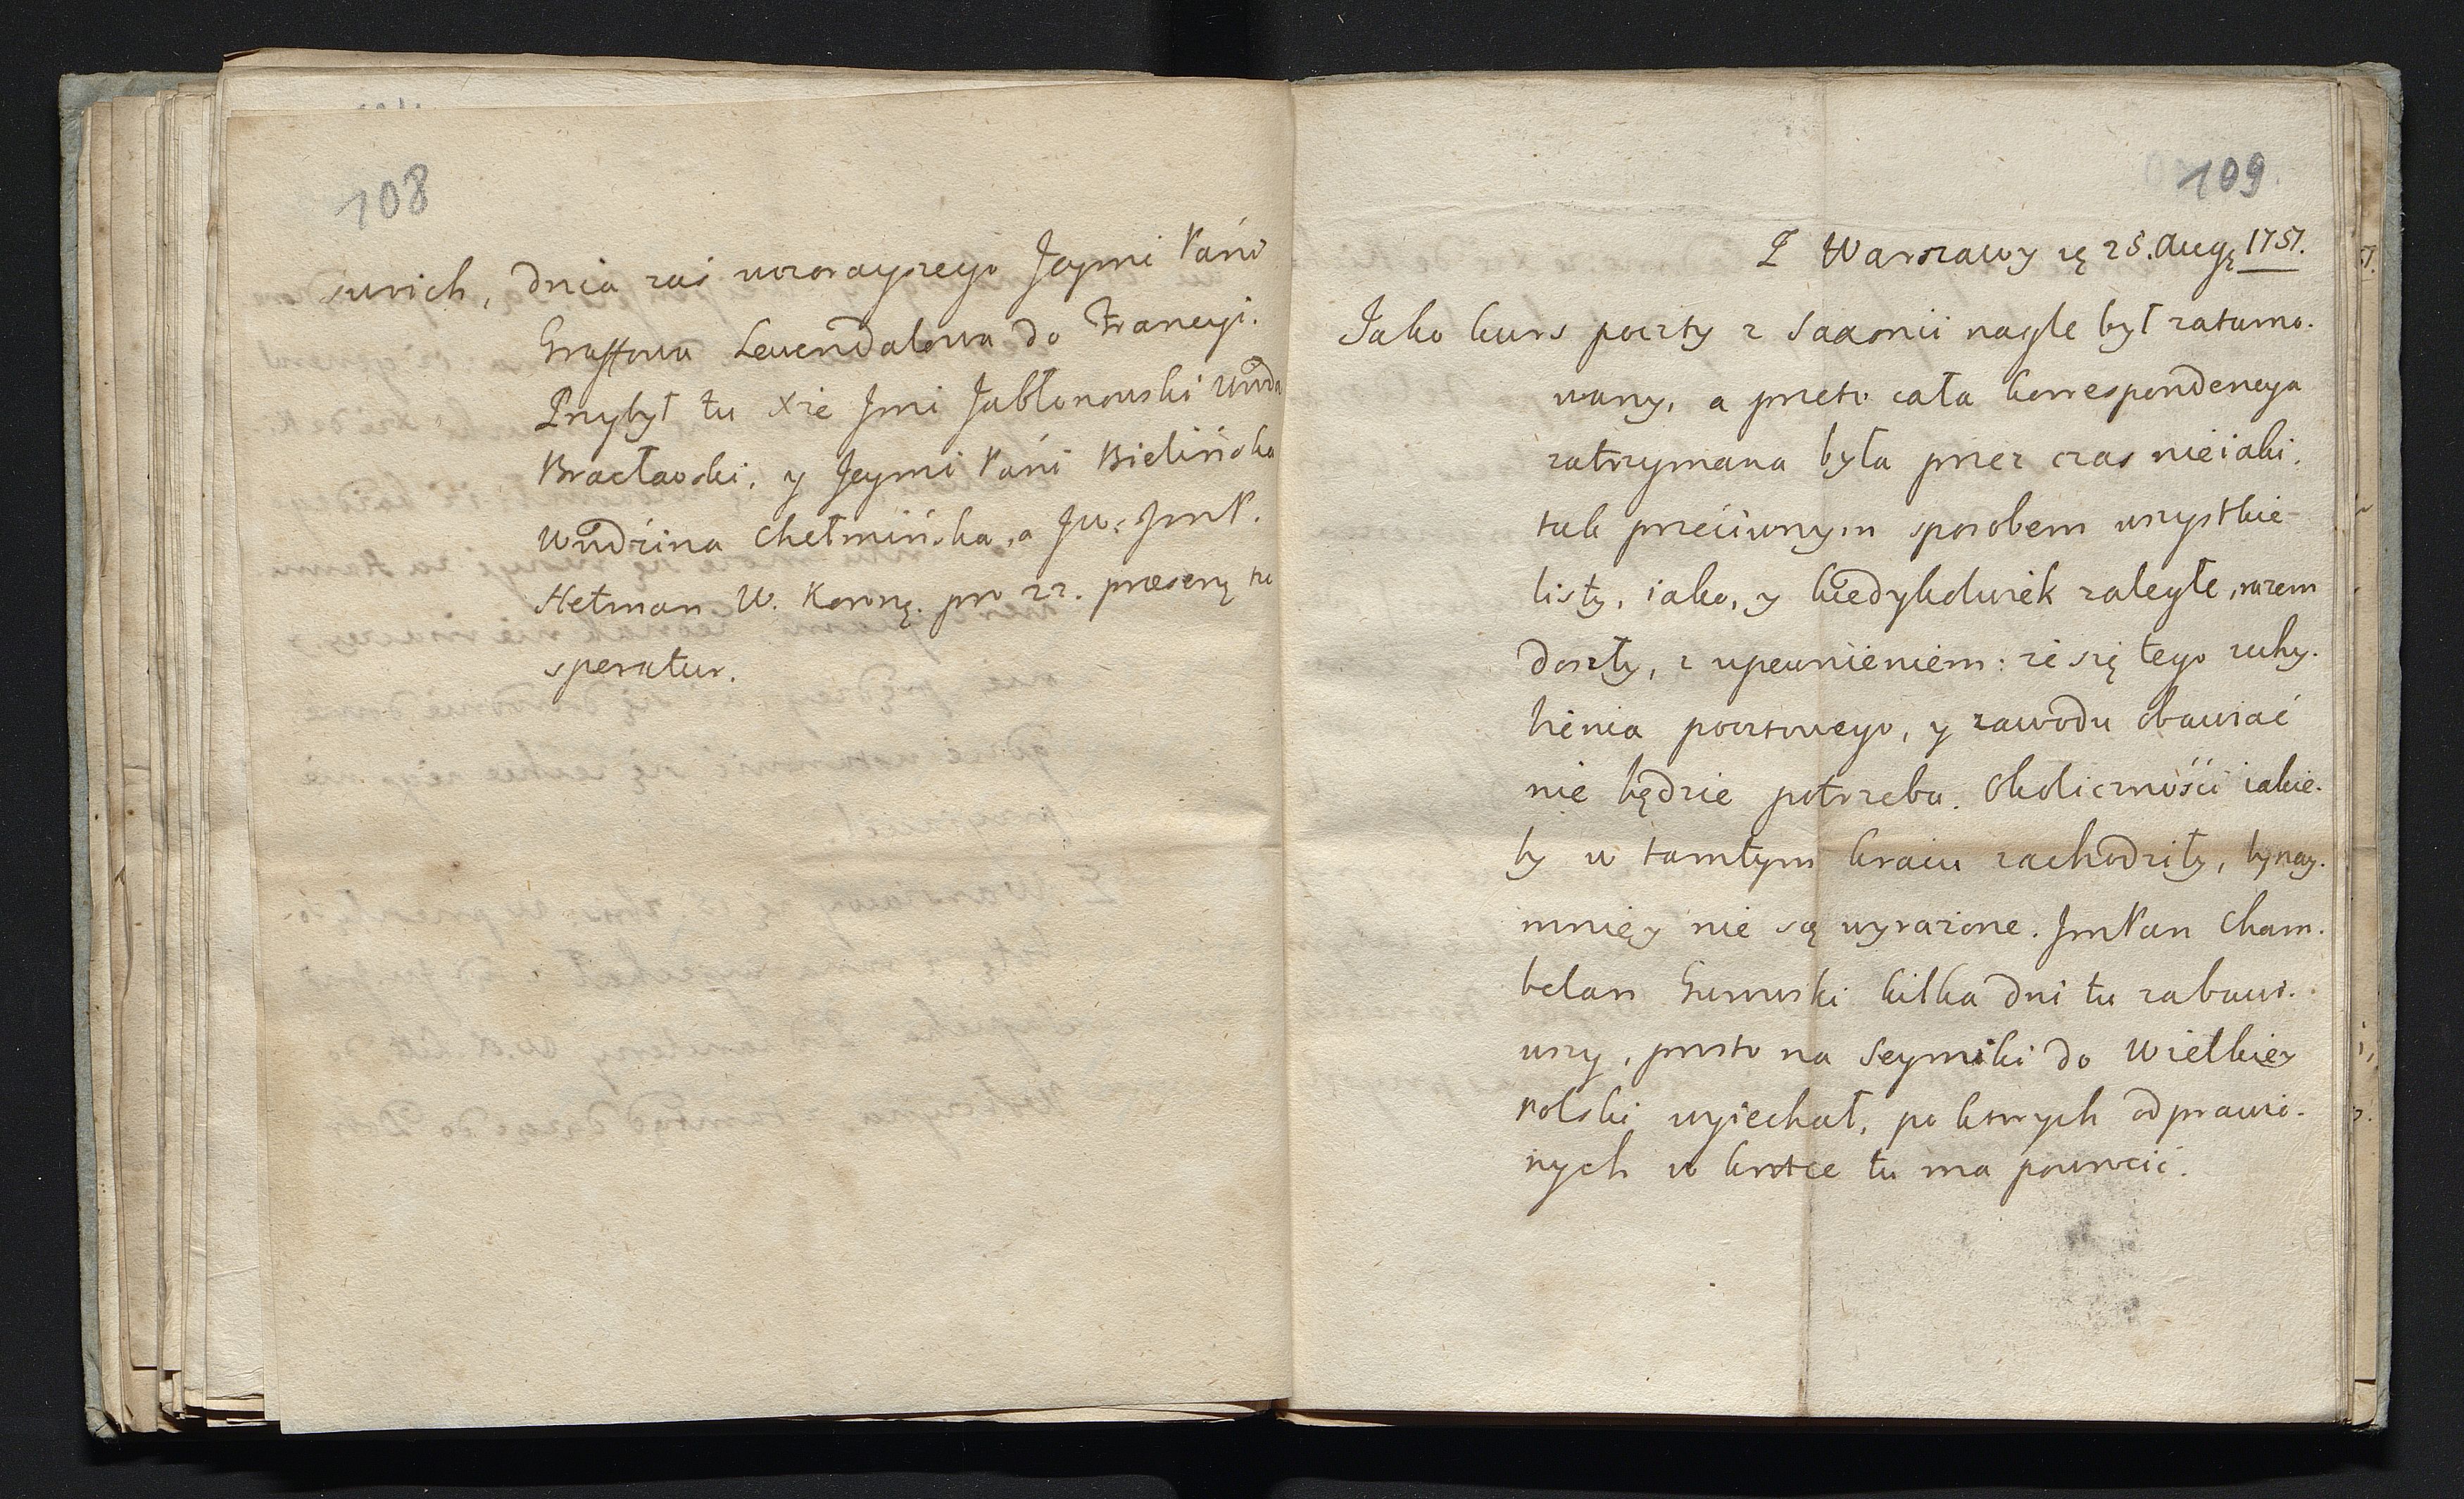 108
swoich, dnia zaś wczorayszego Jeymi Pani
Graffowa Lewendalowa do Francyi.
Przybył tu Xże Jmi Jabłonowski Wwda
Bracławski, y Jeymi Pani Bielińska
Wwdzina Chełmińska, a Jw. JmP.
Hetman W. Koronę. pro 22. præsenę tu
speratur.
109
Z Warszawy ię 25. Augę 1757.
Jako kurs poczty z Saxonii nagle był zatamo.
wany, a przeto cała korrespondencya
zatrzymana była przez czas nieiaki,
tak przeciwnym sposobem wszystkie
listy, iako, y kiedykolwiek zaległe, razem
doszły, z upewnieniem: że się tego uchy.
bienia pocztowego, y zawodu obawiać
nie będzie potrzeba. Okoliczności iakie.
by w tamtym kraiu zachodziły, bynay.
mniey nie są wyrażone. JmPan Cham.
belan Gurowski kilka dni tu zabawi.
wszy, prosto na Seymiki do Wielkiey
Polski wyiechał, po ktorych odprawio.
nych w krotce tu ma powrocić.